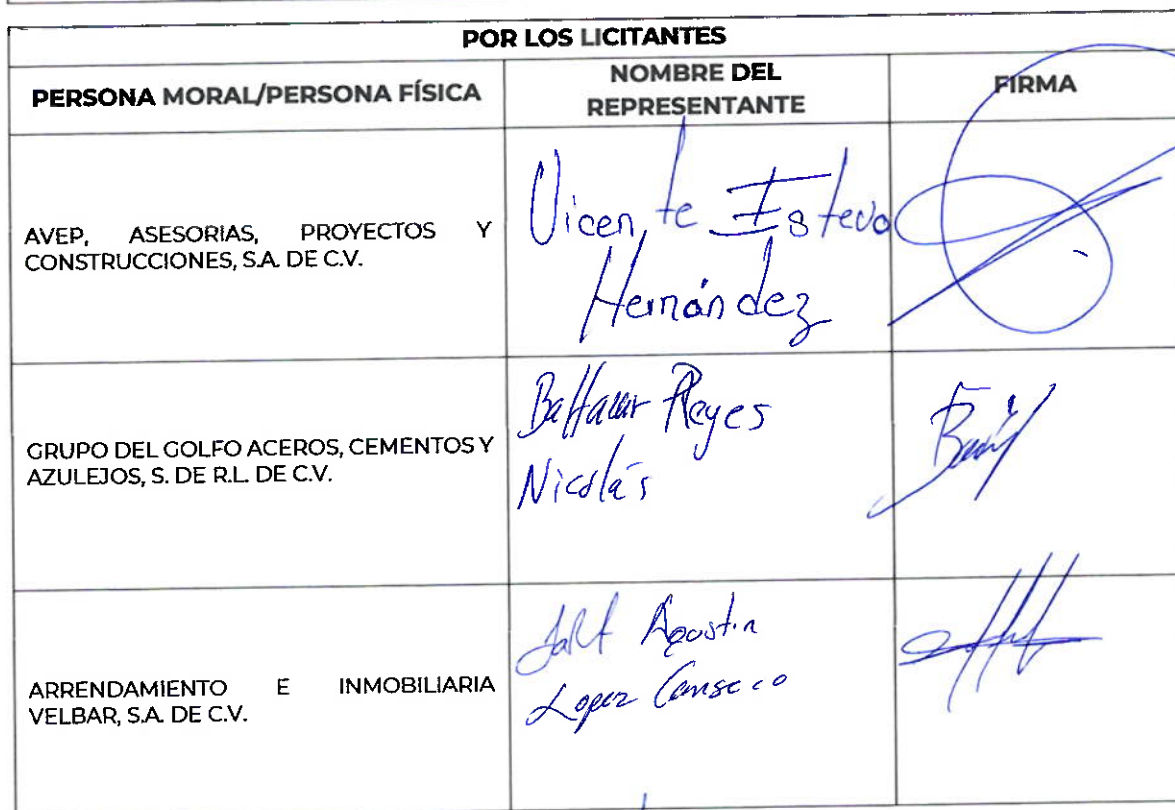 POR LOS LICITANTES
PERSONA MORAL/PERSONA FÍSICA
NOMBRE DEL
REPRESENTANTE
FIRMA
AVEP, ASESORIAS, PROYECTOS Y
CONSTRUCCIONES, S.A. DE C.V.
Vicente Esteva
Hernández
GRUPO DEL GOLFO ACEROS, CEMENTOS Y
AZULEJOS, S. DE R.L. DE C.V.
Baltazar Reyes
Nicolás
ARRENDAMIENTO E INMOBILIARIA
VELBAR, S.A. DE C.V.
Agustin
Lopez Canseco